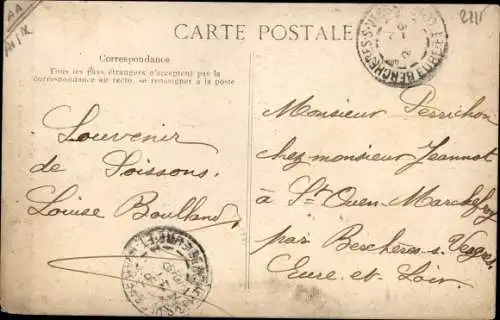 AA
2711
CARTE POSTALE
Correspondance
Tous les pays étrangers n'acceptent pas la
correspondance au recto, se renseigner à la poste
Souvenir
de Soissons.
Louise Boulland
Monsieur Perrichon
chez monsieur Jeannot
à St Ouen Marchefroy
par Berchères-s-Vesgres
Eure-et-Loir